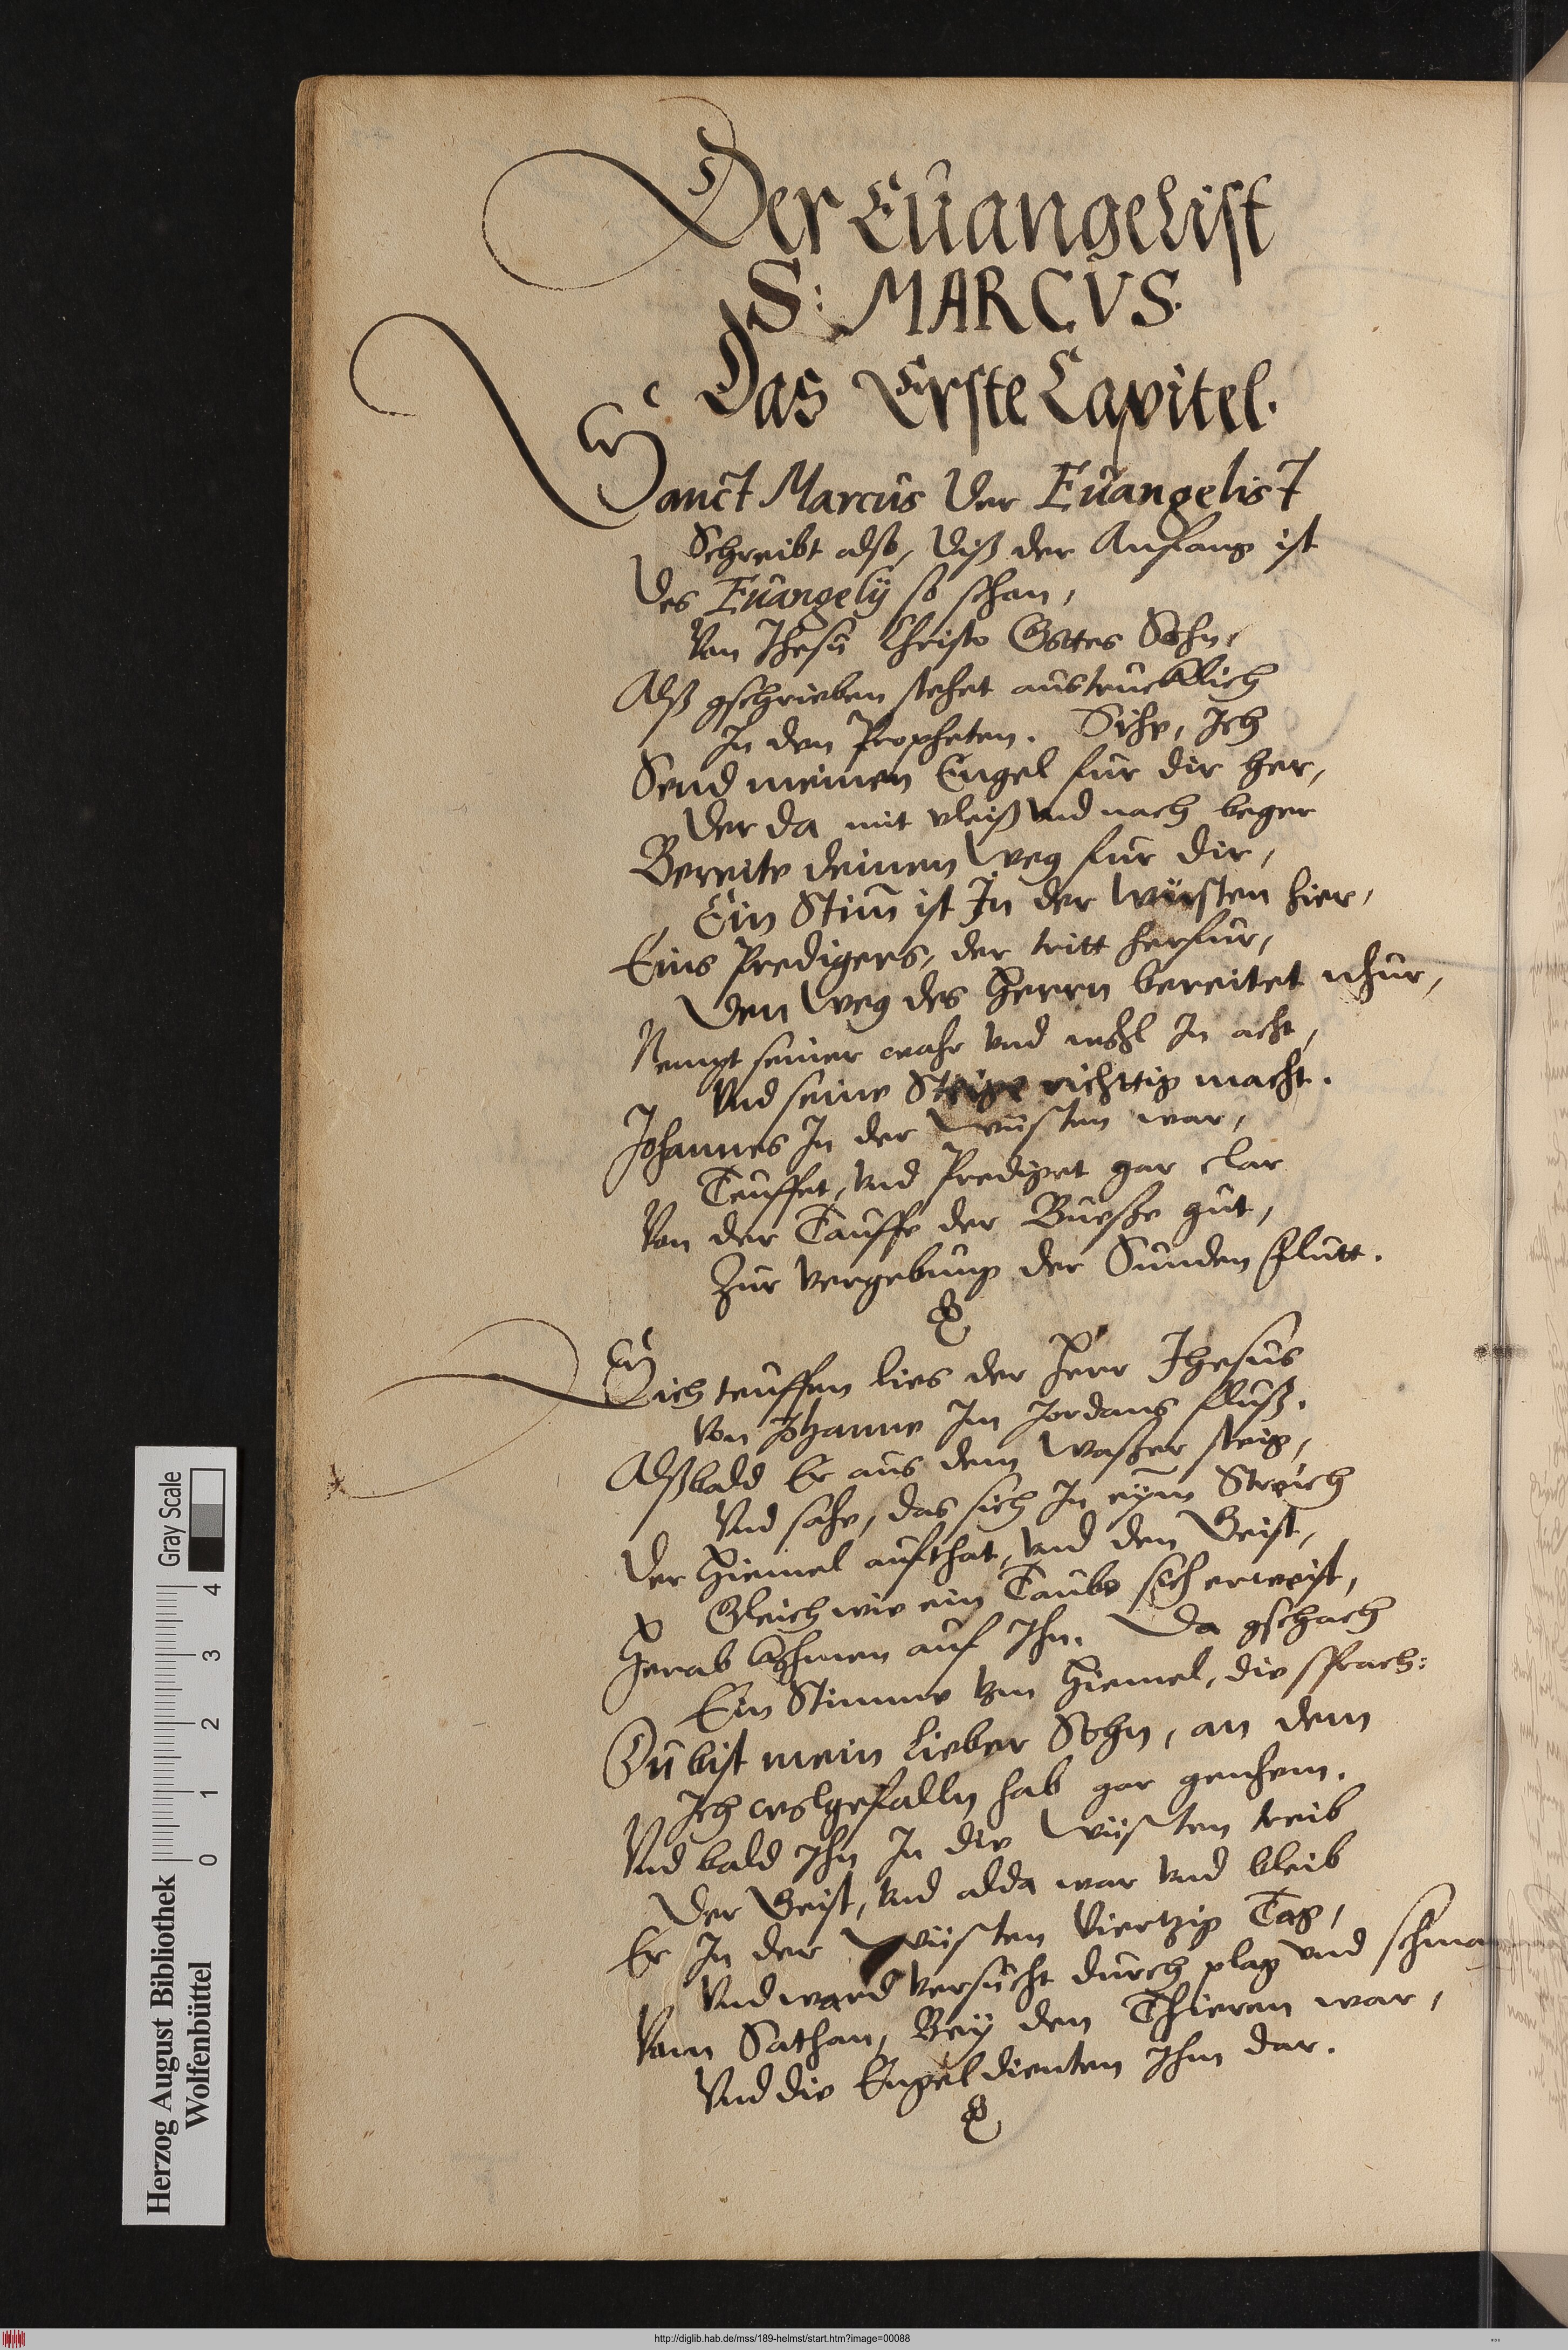 Der Euangelist
S: MARCVS.
Das Erste Capitel.
Sanct Marcus der Euangelist
Schreibt also, diß der Anfang ist
Des Euangelÿ so schon,
Von Jhesu Christo Gottes Sohn,
Alß gschrieben stehet austrucklich
In den Propheten. Sihe, Ich
Send meinen Engel fur dir her,
Der da mit vleiß vnd nach beger
Bereite deinen Weg fur dir,
Ein Stim̄ ist In der Wüsten hier,
Eins Predigers, der tritt herfur,
Den Weg des Herrn bereitet nhur,
Nempt seiner wahr vnd wohl In acht,
Vnd seine Steige richttig macht.
Johannes In der Wüsten war,
Teuffet, vnd Prediget gar clar
Von der Tauffe der Bueße gut,
Zur vergebung der Sunden flutt.
Sich teuffen lies der Herr Jhesus
Von Johanne Im Jordans fluß.
Alßbald Er aus dem Waßer steig,
Vnd sahe, das sich In eÿm Streich
Der Hiemel aufthat, vnd den Geist,
Gleich wie ein Taube sich erweist,
Herab kohmen auf Ihn. Da gschach
Ein Stimme vom Hiemel, die sprach:
Du bist mein lieber Sohn, an dem
Ich wolgefalln hab gar genhem.
Vnd bald Ihn In die Wüsten treib
Der Geist, vnd alda war vnd bleib
Er In der Wüsten Viertzig Tag,
Vnd ward versucht durch plag vnd
Vom Sathan, Beÿ den Thieren war,
Vnd die Engel dienten Ihm dar.
Herzog August Bibliothek
Wolfenbüttel
0 1 2 3 4
Gray Scale
http://diglib.hab.de/mss/189-helmst/start.htm?image=00088